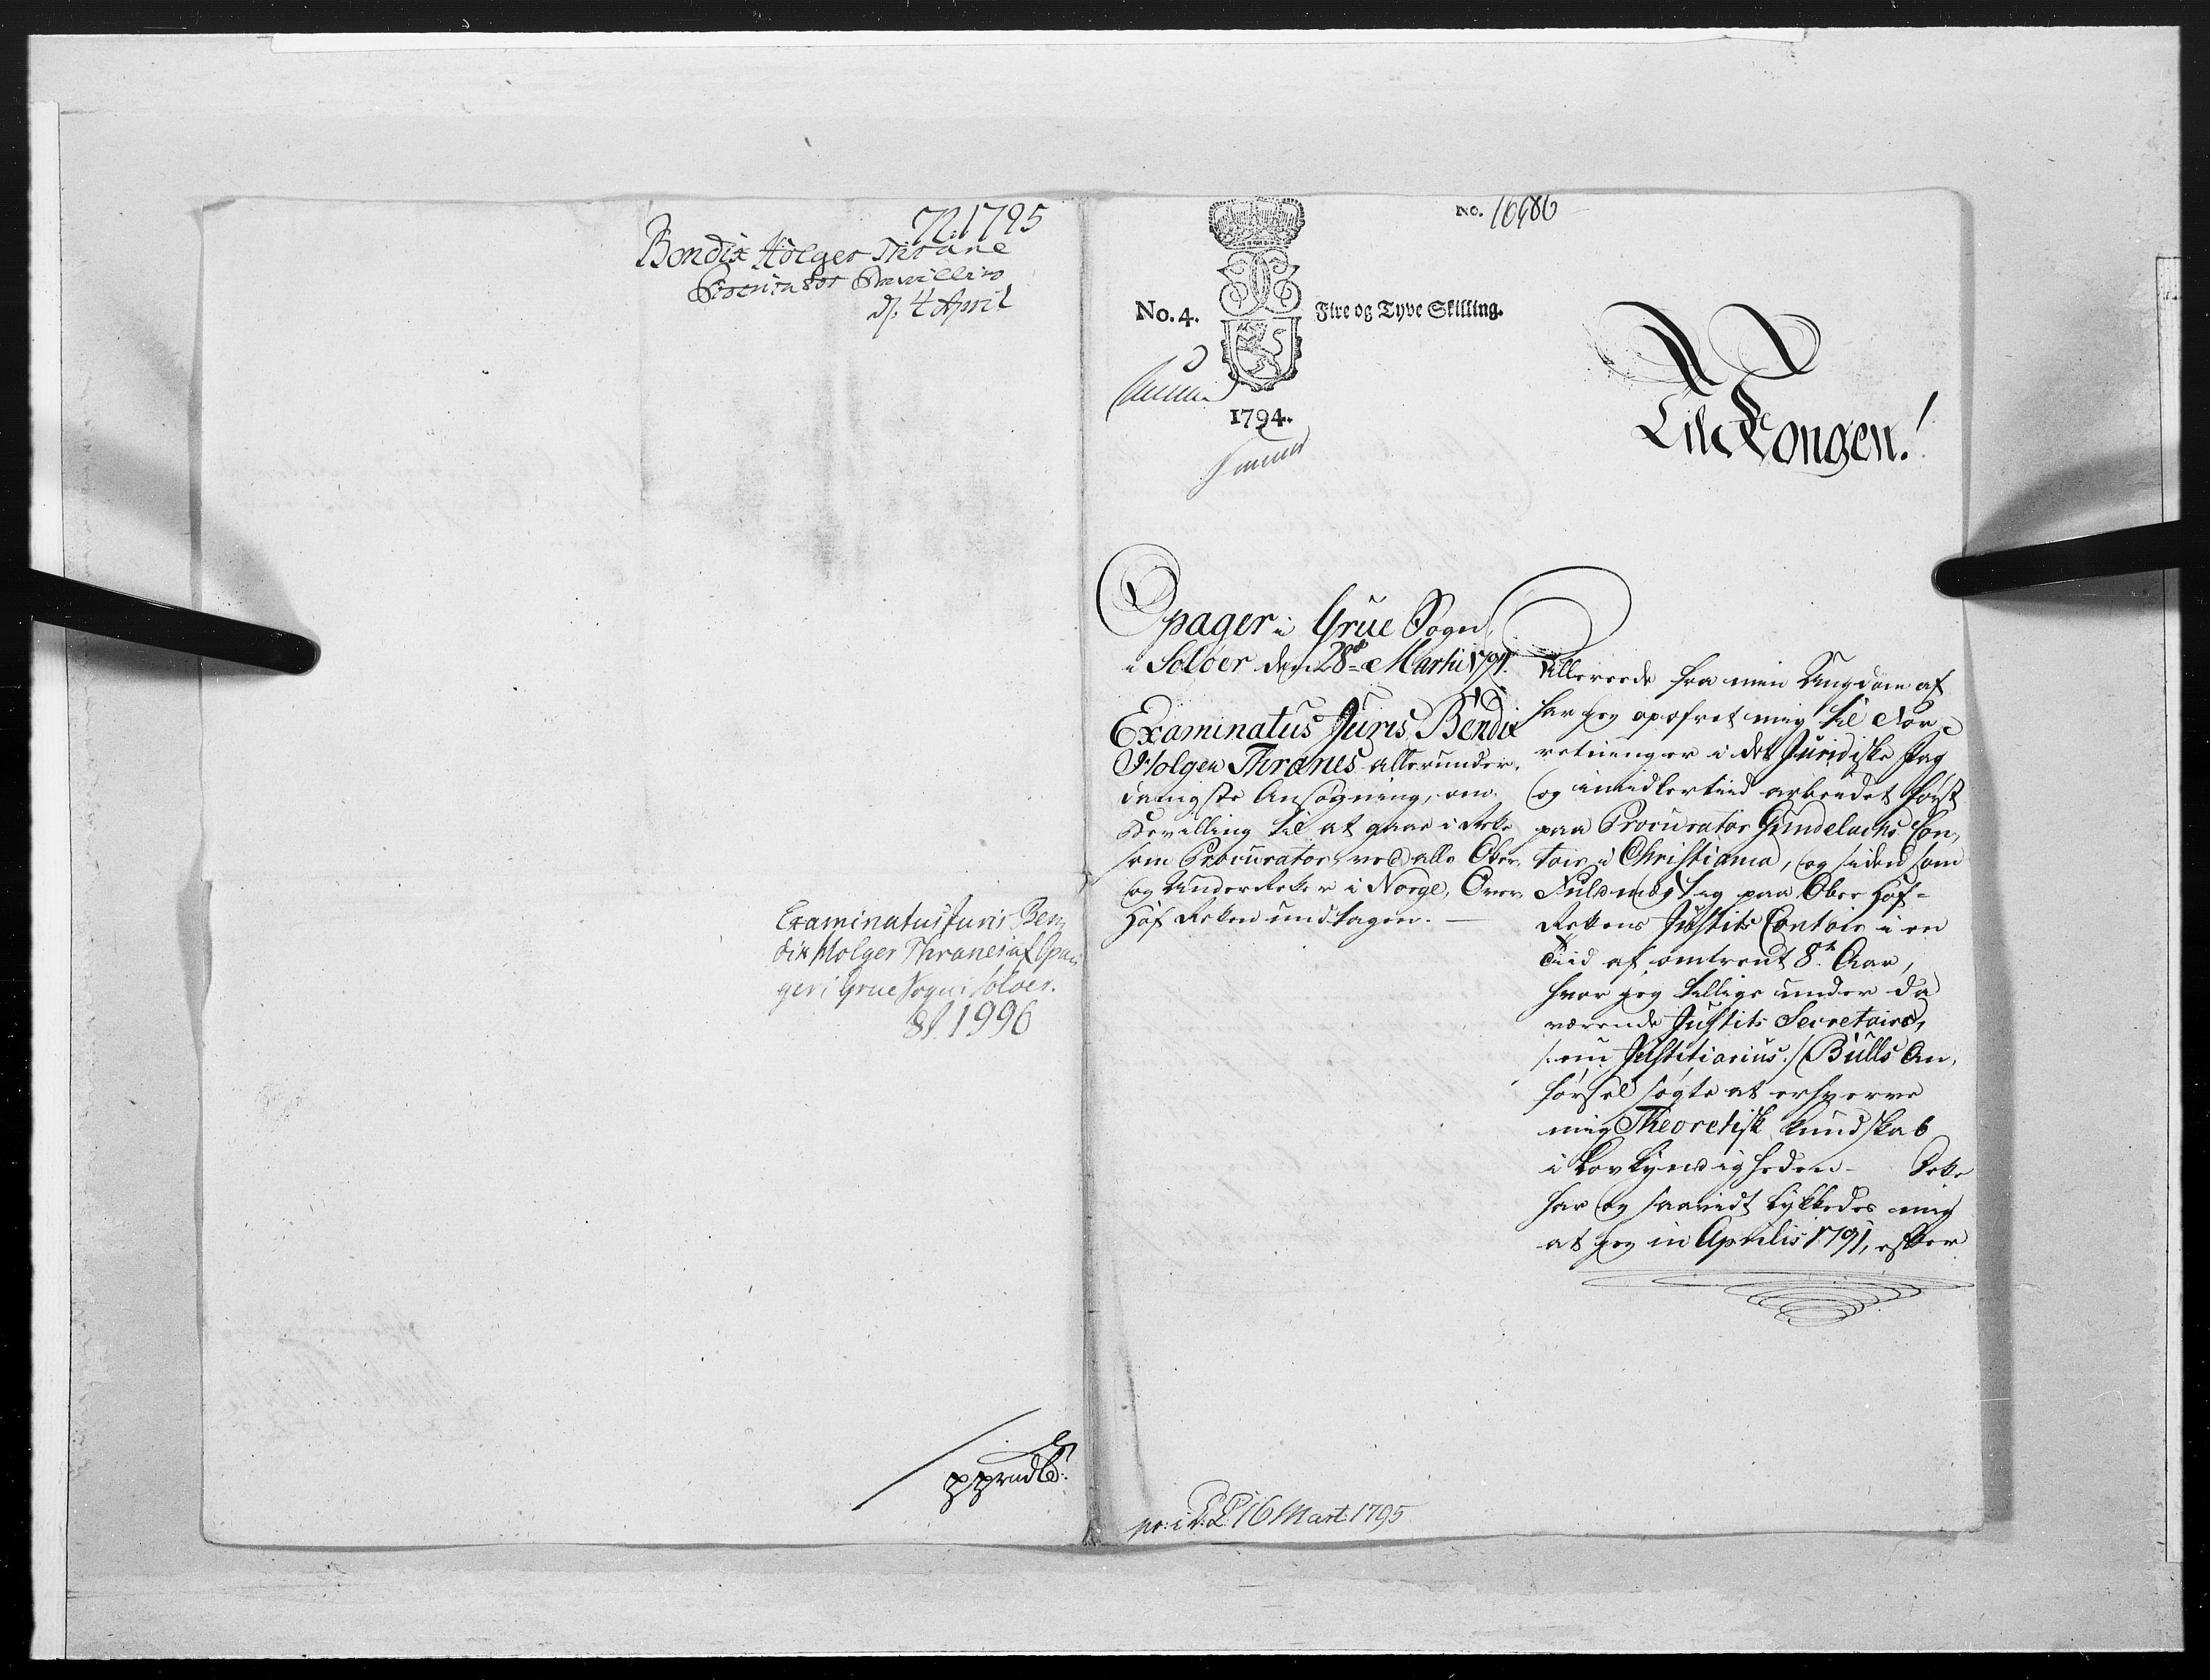 72. 1795
Bendix Holger Thrane
Procurator Bevilling
d. 4 April
Examinatus Juris Ben
dix Holger Thranes af Opa
ger i Grue Sogn i Soløer.
1996
No. 16486
No. 4. Fire og Tyve Skilling.
1794.
Til Kongen!
Opager i Grue Sogn
i Soløer den 28de Martii 179
Examinatus Juris Bendix
Holger Thranes allerunder-
danigste Ansøgning, om
Bevilling til at gaae i Rette
som Procurator ved alle Over
og Underretter i Norge, Over
Hof Retten undtagen. —
Allereede fra min Ungdom af
har jeg opofret mig til For-
retninger i det Juridiske Fag
og imidlertiid arbeidet først
paa Procurator Gundelachs Con-
toir i Christiania, og siden som
Fuldmægtig paa Ober Hof-
Rettens Justits Contoir i en
Tiid af omtrent 8te Aar,
hvor jeg tillige under da
værende Justits Secretaire,
/: nu Justitiarius :/ Bulls An-
førsel søgte at erhverve
mig Theoretisk Kundskab
i Lovkyndigheden - Dette
har og saavidt lykkedes mig
at jeg in Aprilis 1791, efter
pr: i D: C: 16 Mart: 1795